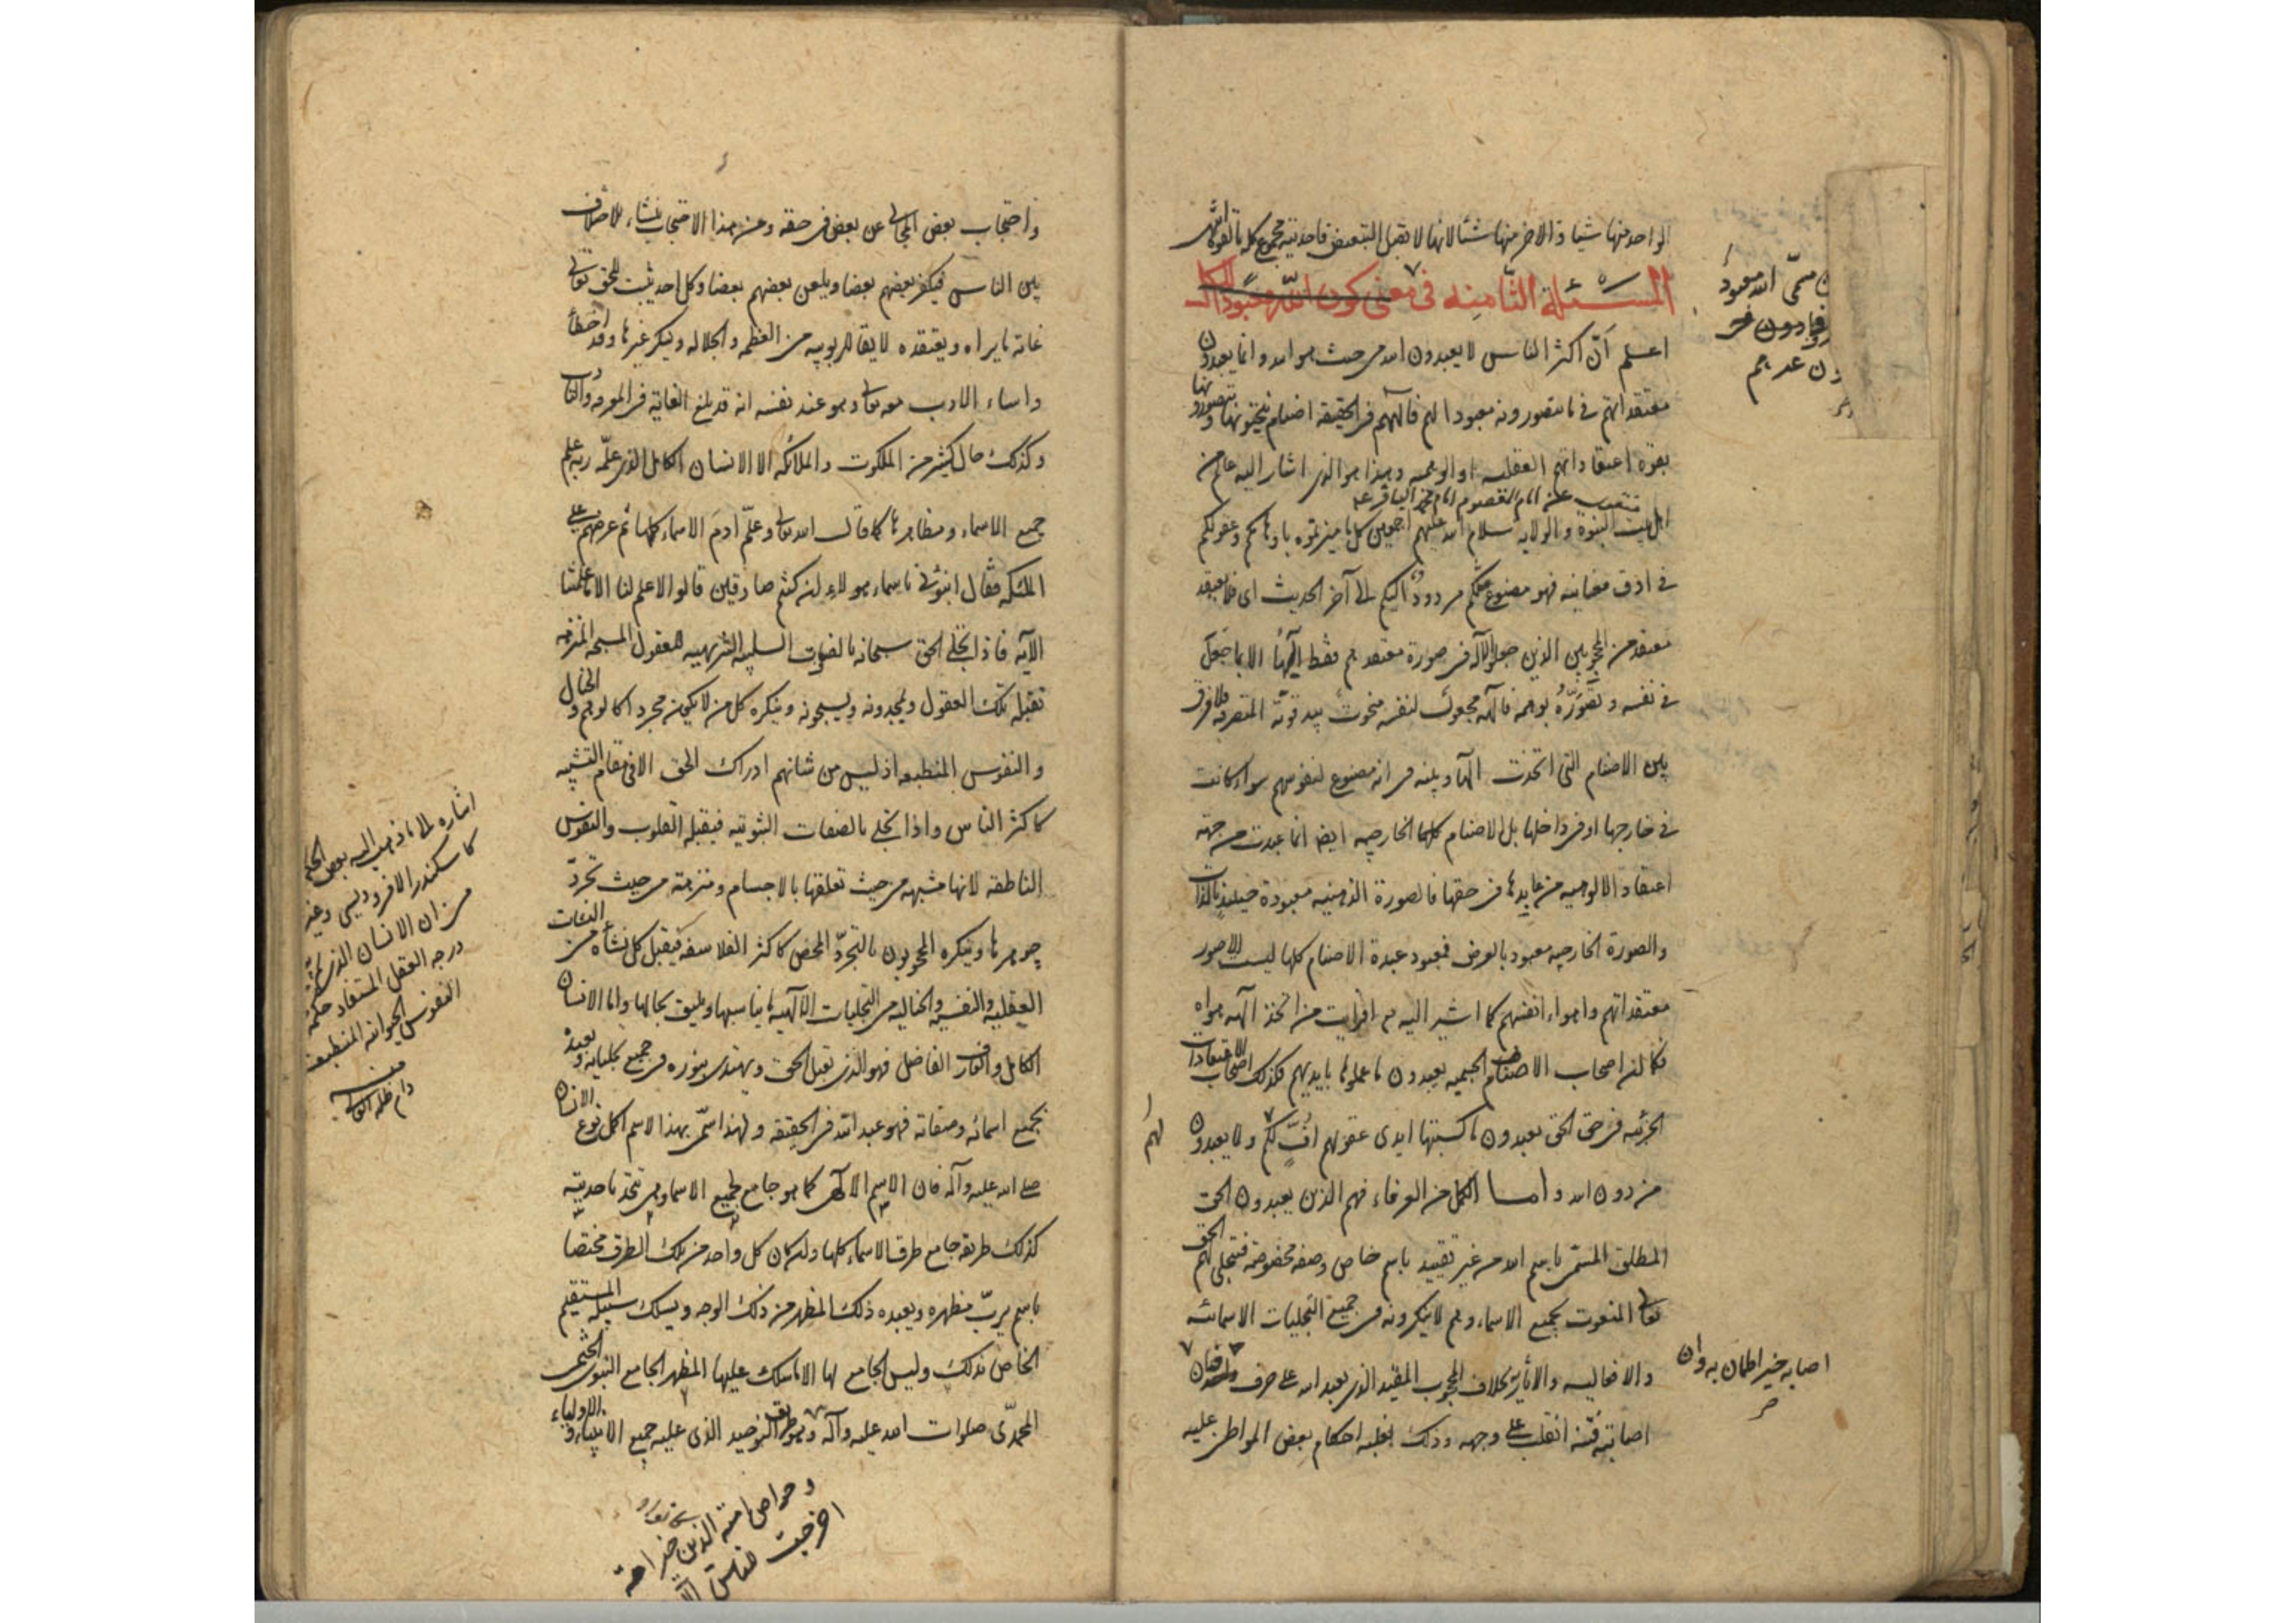 الواحد منها شيا والاخر منها شئا لانها لا تقبل التبعيض فاحديته مجموع كل
المسئلة الثامنه في معنى كون الله معبودا
اعلم أنّ اكثر الناس لا يعبدون الله من حيث هو الله وانما يعبدون
معتقداتهم في ما يتصورونه معبودا لهم فآلهتهم في الحقيقه اصنام ينحتونها ويتصورونها
بقوة اعتقاداتهم العقليه او الوهميه وهذا هو الذى اشار اليه عالم من
اهل بيت النبوة والولاية سلام الله عليهم اجمعين كل ما ميزتموه باوهامكم وعقولكم
في ادق معانيه فهو مصنوع مثلكم مردود اليكم الى آخر الحديث اى فلا يعتقد
معتقد من المحجوبين الذين جعلوا الآله فى صورة معتقدهم فقط الهًا الا بما جعل
في نفسه وتصوّره بوهمه فالهه مجعول لنفسه منحوت بيد قوته المتصرفه فلا فرق
بين الاصنام التى اتخذت الها وبينه فى انه مصنوع لنفوسهم سواء كانت
في خارجها او فى داخلها بل الاصنام كلها الخارجيه ايضا انما عبدت من جهة
اعتقاد الالوهيه من عابدها فى حقها فالصورة الذهنيه معبودة حينئذ بالذات
والصورة الخارجيه معبود بالعرض فمعبود عبدة الاصنام كلها ليست الا صور
معتقداتهم واهواء انفسهم كما اشير اليه افرايت من اتخذ آلهه هواه
فكما ان اصحاب الاصنام الجسميه يعبدون ما عملوها بايديهم فكذلك اصحاب الاعتقادات
الجزئيه فى حق الحق يعبدون ما كسبتها ايدى عقولهم افٍّ لكم ولما يعبدون
من دون الله واما الكمل من العرفاء فهم الذين يعبدون الحق
المطلق المسمّى باسم الله من غير تقييد باسم خاص وصفه مخصوصه فتجلى لهم الحق
تعالى المنعوت بجميع الاسماء وهم لا ينكرونه فى جميع التجليات الاسمائيه
والافعاليه والاثاريه بخلاف المحجوب المقيد الذى يعبد الله على حرف فان
اصابته فتنه انقلب على وجهه وذلك لغلبه احكام بعض المواطن عليه
اصابه خير اطمان به وان
لهم
واحتجاب بعض المجالى عن بعض فى حقه وعن هذا الاحتجاب ينشاء الاختلاف
بين الناس فيكفر بعضهم بعضا ويلعن بعضهم بعضا وكل احد يثبت للحق تعالى
غاية ما يراه ويعتقده لايقا للربوبيه من العظمه والجلاله وينكر غيرها وقد اخطأ
واساء الادب معه تعالى وهو عند نفسه انه قد بلغ الغاية فى المعرفه والتادب
وكذلك حال كثير من الملكوت والملائكه الا الانسان الكامل الذى علّمه ربه علم
جميع الاسماء ومظاهرها كما قال الله تعالى وعلّم ادم الاسماء كلها ثم عرضهم على
الملئكه فقال انبئونى باسماء هولاء ان كنتم صادقين قالوا لا علم لنا الا ما علمتنا
الآيه فاذا تجلى الحق سبحانه بالصفات السلبيه التنزيهيه للعقول المسبحه المنزهه
تقبله تلك العقول ويمجدونه ويسبحونه وينكره كل من لا يكون مجردا كالوهم والخيال
والنفوس المنطبعه اذ ليس من شانهم ادراك الحق الا فى مقام التشبيه
كاكثر الناس واذا تجلى بالصفات الثبوتيه فيقبله القلوب والنفوس
الناطقه لانها مشبهه من حيث تعلقها بالاجسام ومنزهة من حيث تجرّد
جوهرها وينكره المحجوبون بالتجرّد المحض كاكثر الفلاسفه فيقبل كل نشأه من النشآت
العقليه والنفسيه والخاليه من التجليات الآلهيه ما يناسبها ويليق بحالها واما الانسان
الكامل والعارف الفاضل فهو الذى يقبل الحق ويهتدى بنوره فى جميع تجلياته ويعبده
بجميع اسمائه وصفاته فهو عبد الله فى الحقيقه ولهذا سمّى بهذا الاسم اكمل نوع الانسان
صلى الله عليه وآله فان الاسم الآلهى كما هو جامع لجميع الاسماء وهى تتحد باحديته
كذلك طريقه جامع طرق الاسماء كلها وان كان كل واحد من تلك الطرق مختصا
باسم يربّ مظهره ويعبده ذلك المظهر من ذلك الوجه ويسلك سبيله المستقيم
الخاص بذلك وليس الجامع لها الا ما سلك عليها المظهر الجامع النبوى الختمى
المحمّدى صلوات الله عليه وآله وهو طريق التوحيد الذى عليه جميع الانبياء والاولياء
اشاره الى ما ذهب اليه بعض
كاسكندر الافروديسى وغيره
من ان الانسان الذى
درجه العقل المستفاد حكمه
النفوس الحيوانيه المنطبعه
منه
دام ظله العالى
وخواص امته الذين خير امة
اخرجت للناس